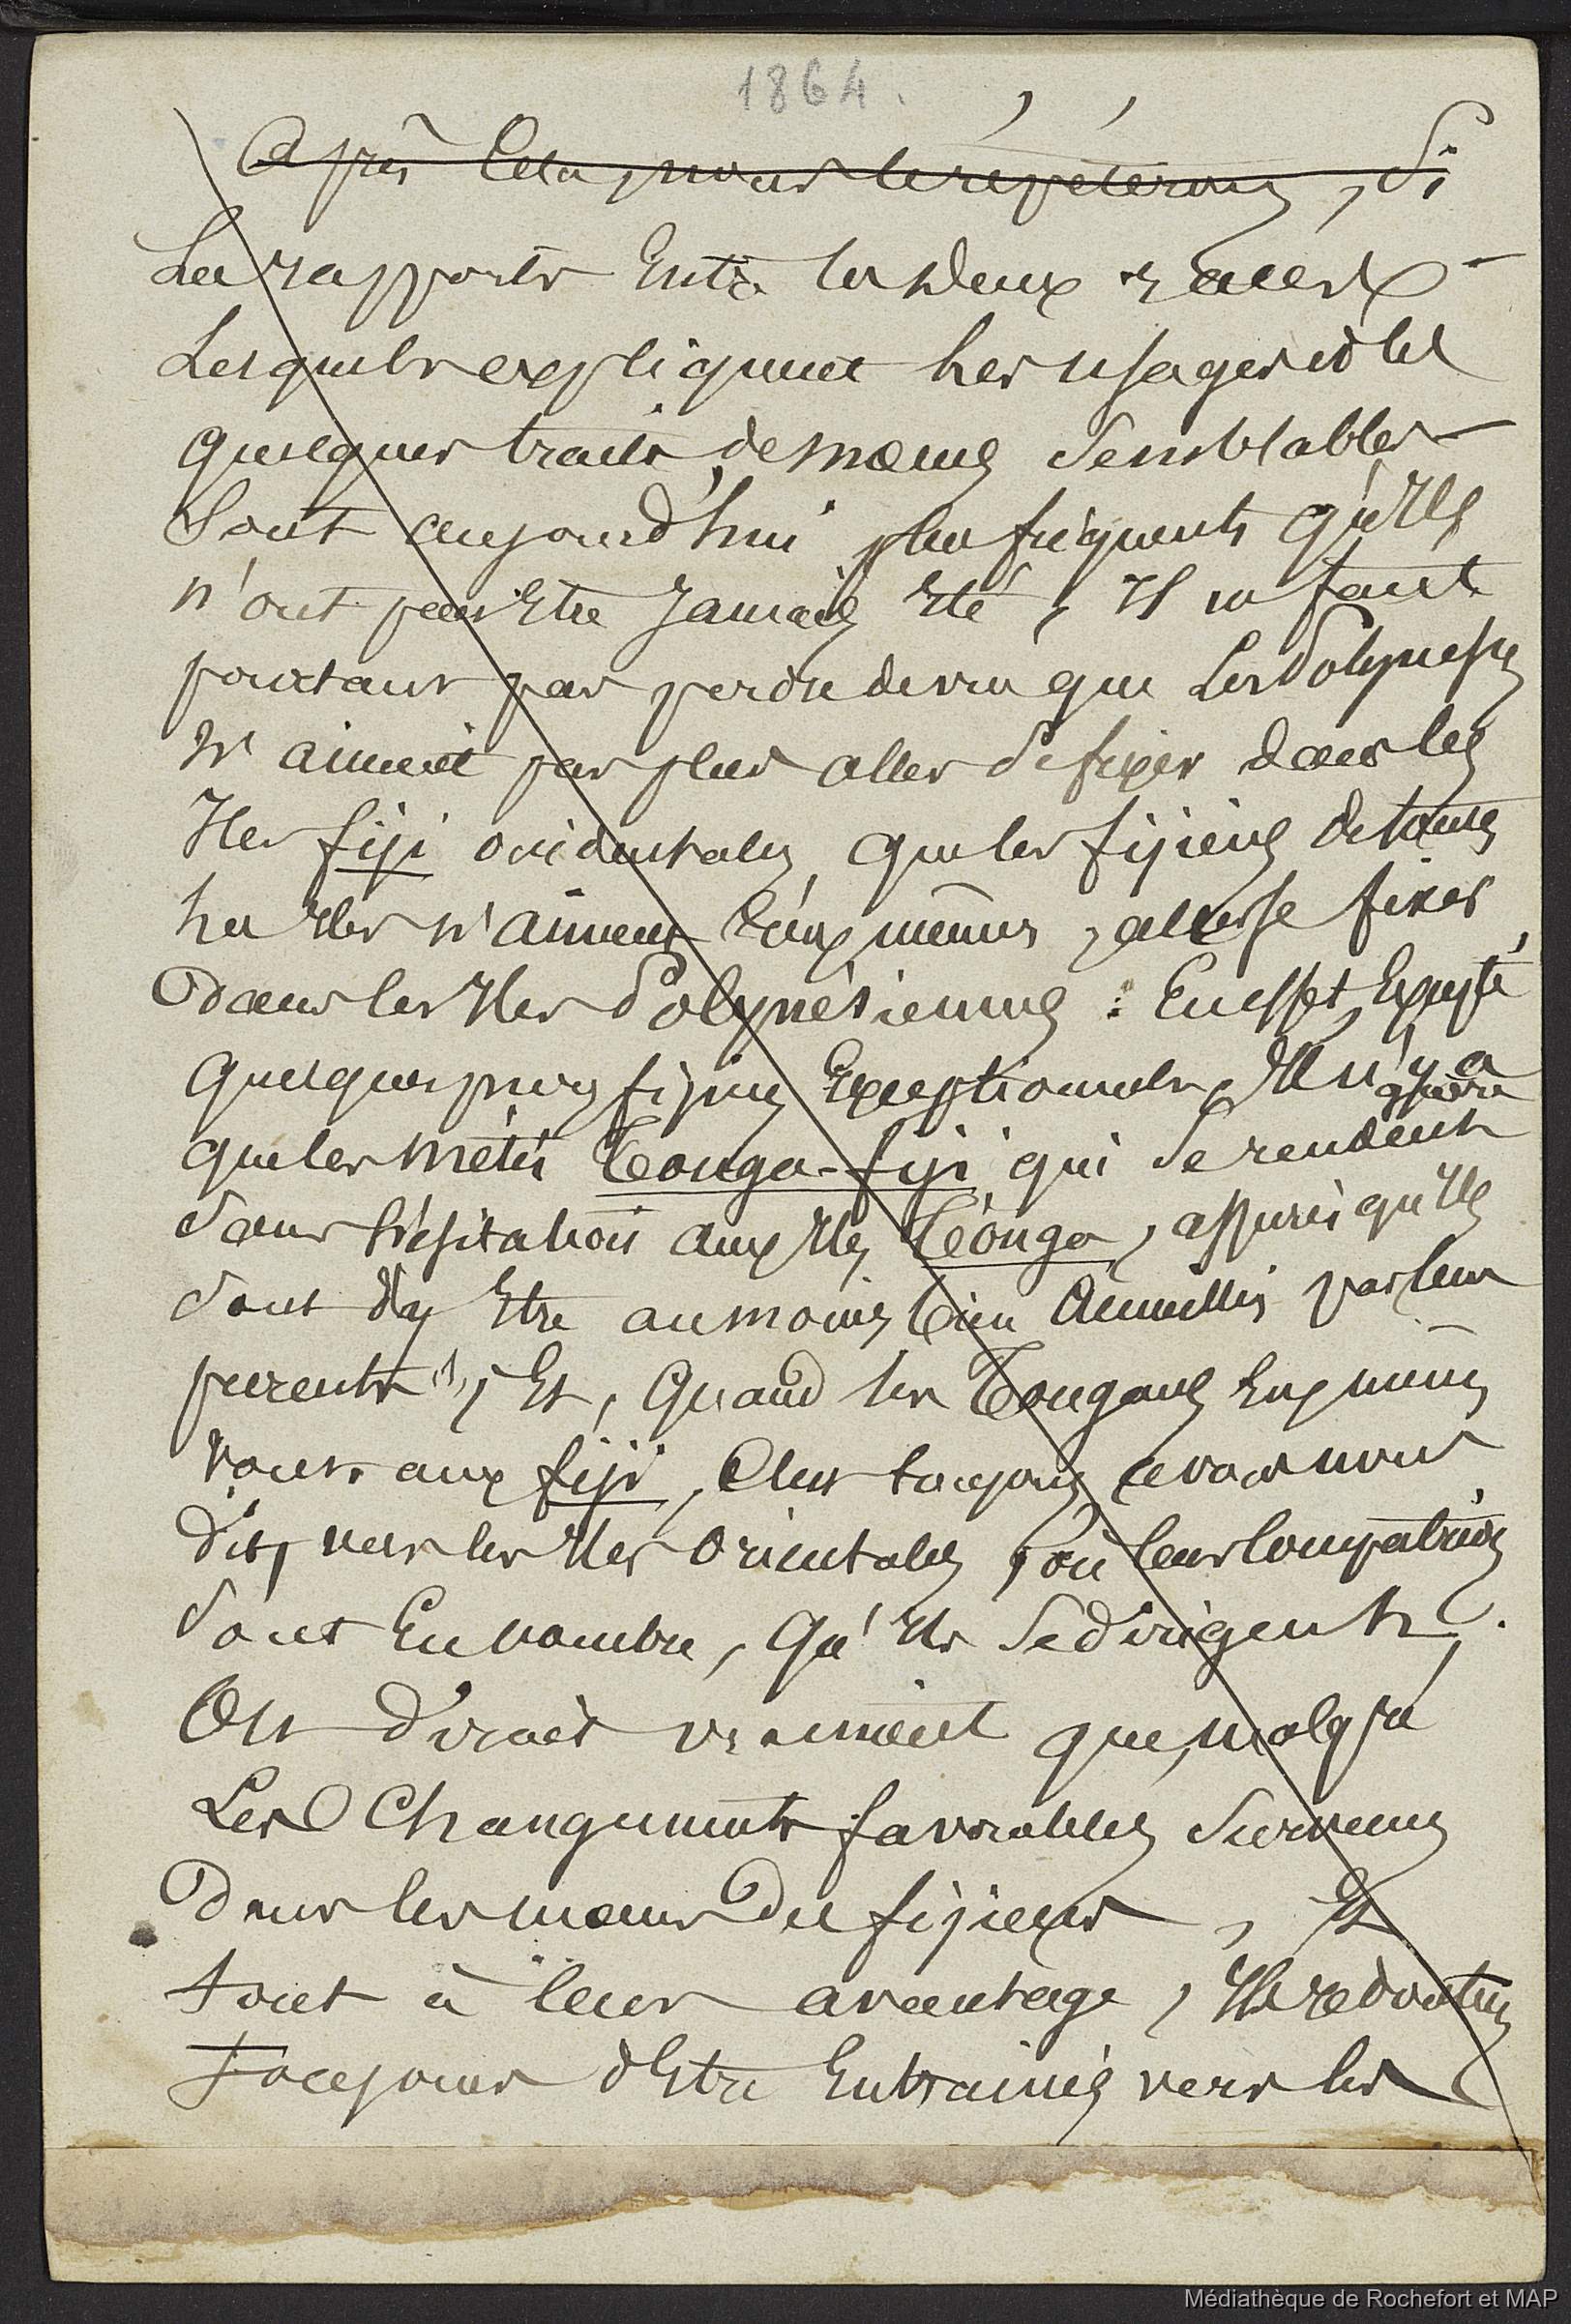 1864.
Après Cela, nous le répéterons, Si
Les rapports Entre les deux races
Lesquels expliquent les usages et les
quelques traits de mœurs Semblables
Sont aujourd'hui plus fréquents qu'Ils
n'ont peut Etre Jamais Eté, Il ne faut
pourtant pas perdre de vue que Les Polynesiens
N'aiment pas plus aller Se fixer dans les
Iles fiji occidentales, que les fijiens de toutes
les Iles N'aiment Eux mêmes, aller se fixer
Dans les Iles Polynésiennes : En effet, Excepté
quelques purs fijiens Exceptionnels, Il n'y a
guère
que les métis Tonga-fiji, qui Se rendent
Sans hésitation aux Iles Tonga, assurés qu'Ils
Sont d'y Etre au moins bien accueillis par leurs
parents (1); Et, Quand les Tongans Eux mêmes
vont aux fiji, C'est toujours, avons nous
dit, vers les Iles Orientales, où leurs Compatriotes
Sont En nombre, qu'Ils Se dirigent.
On dirait vraiment que, malgré
Les Changements favorables Survenus
Dans les mœurs des fijiens, Et
tout à leur avantage, Ils redoutent
toujours d'Etre Entrainés vers les
Médiathèque de Rochefort et MAP